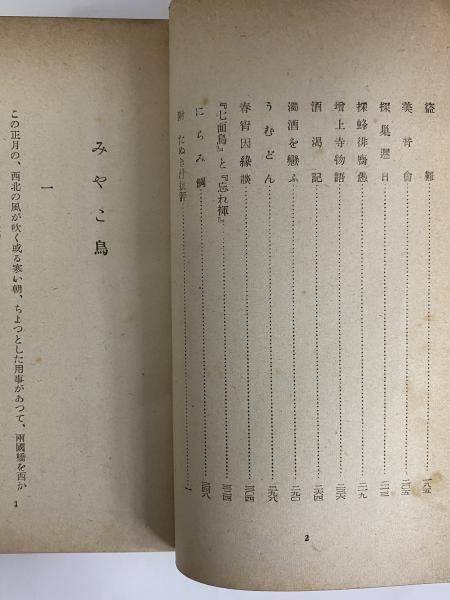 盜難……一八五
美醤會……二〇五
探巢遲日……二一三
探蜂徘徊愚……二一九
增上寺物語……二三六
酒渇記……二六四
濁酒を戀ふ……二九〇
うむどん……二九六
春宵因緣談……三〇四
『七面鳥』と『忘れ褌』……三二四
にらみ鯛……三四八
附 たぬき汁……一
2
みやこ鳥
一
この正月の、西北の風が吹く或る寒い朝、ちよつとした用事があつて、兩國橋を西か
1